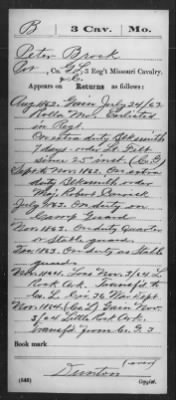 B | 3 Cav. | Mo.
Peter Brock
Pvt., Co. G L, 3 Reg't Missouri Cavalry.
Appears on Returns as follows:
Aug 1862. Gain July 24/62
Rolla Mo. Enlisted
in Regt.
On extra duty Blksmith
7 days - order Lt.
since 25" inst (Co. G)
Sept & Nov 1862. On extra
duty Blksmith order
Maj
July 1863. On duty on
Camp Guard
Nov. 1863. On duty Quarter
or Stable guard.
Dec. 1863. On duty as Stable
guard.
Nov. 1864. Loss Nov. 3/64 L.
Rock Ark. Transf'd to
Co. L
Nov. 1864 (Co L) Gain Nov.
3/64 Little Rock Ark.
Transf'd from Co. G 3
Book mark
(over)
Dunton
(546) Copyist.